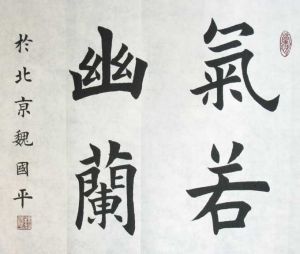 氣若
幽蘭
於北京魏國平